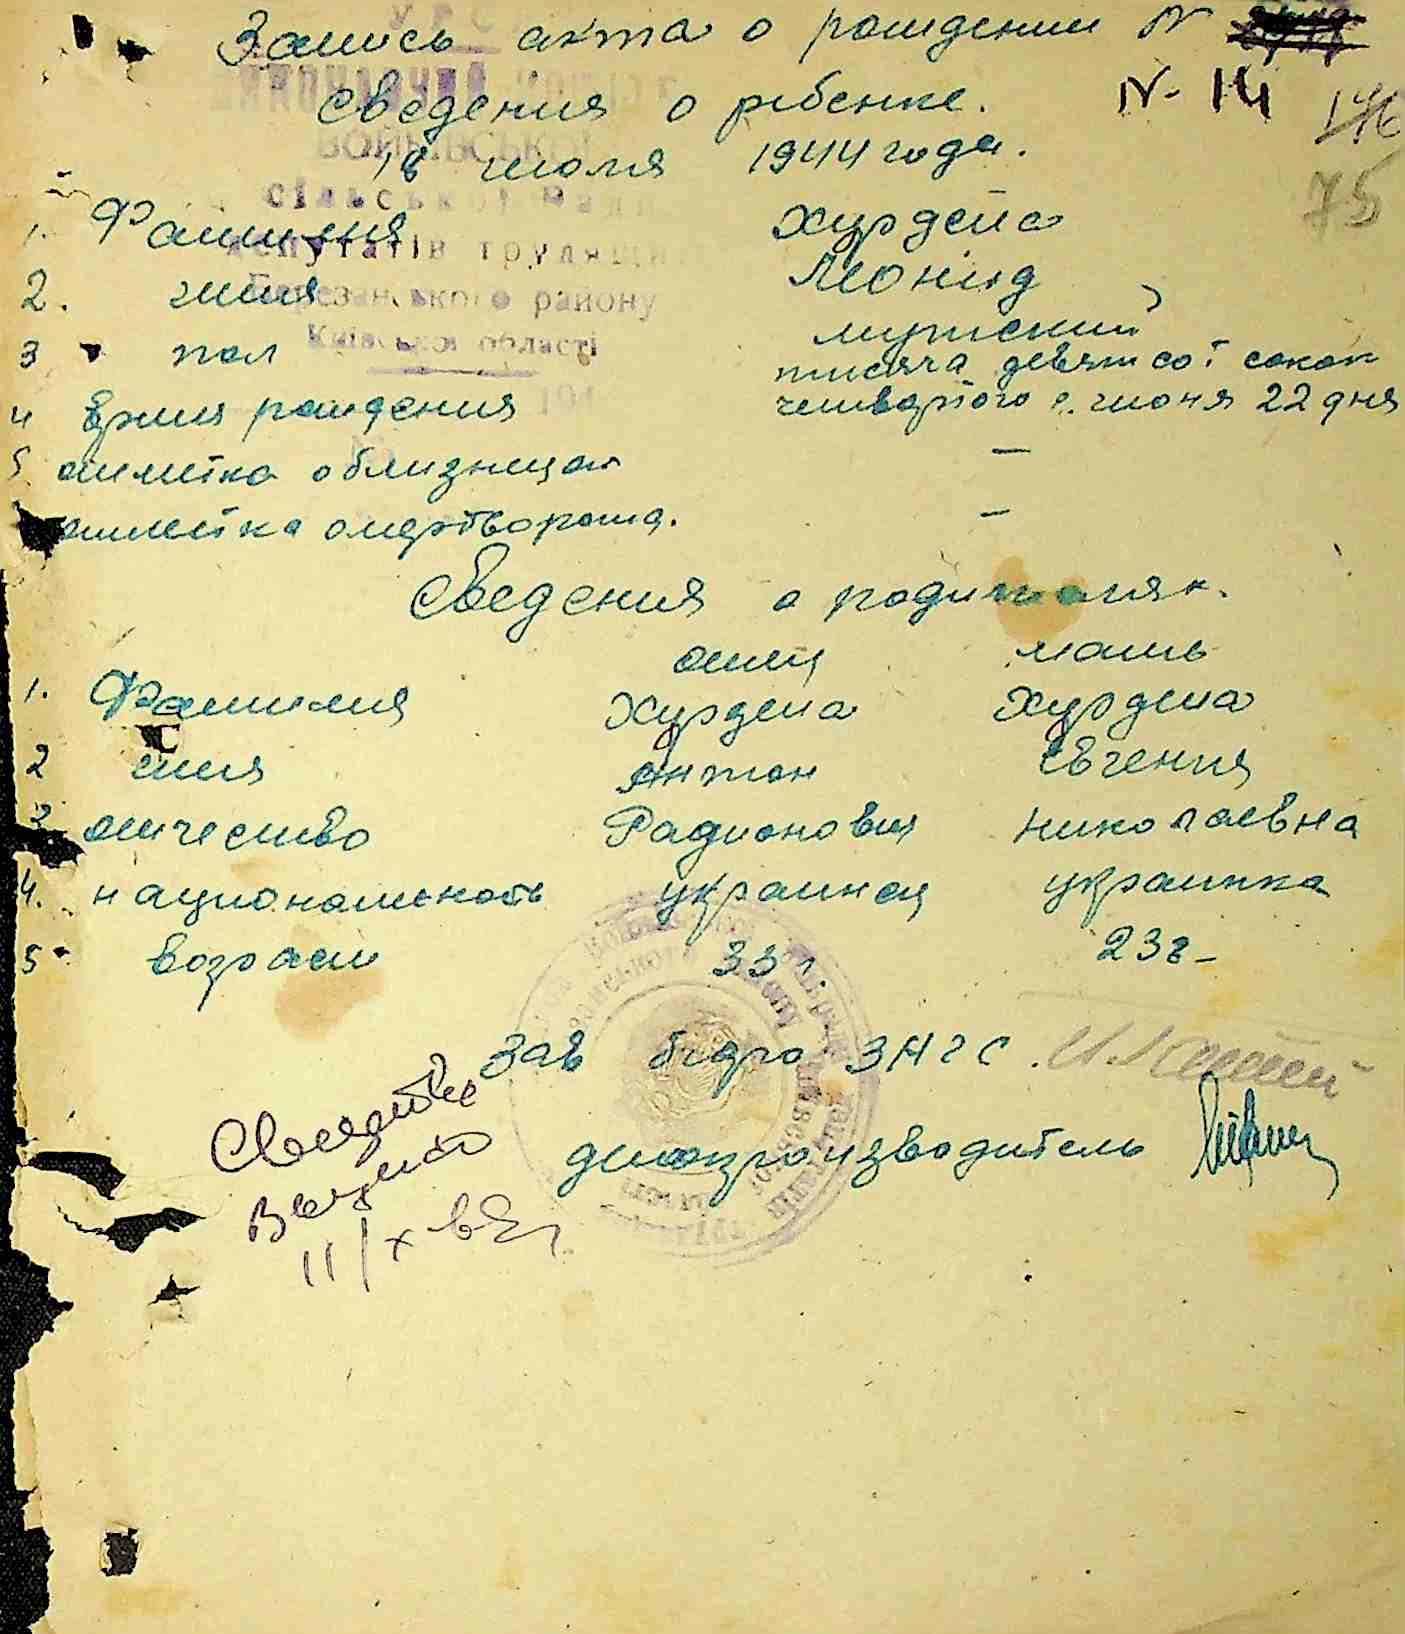 Запись акта о рождении N
сведения о ребенке. N- 14 146
18 июля 1944 года. 75
УРС
сільської Ради
депутатів трудящих
Березанського району
Київської області
194
1. Фамилия Хурдепа
2. имя Леонид
3 пол мужской
4 время рождения тысяча девятсот сорок четвертого г. июня 22 дня
5 отметка о близнецах —
отметка о мертворожд. —
Сведения о родителях.
отец мать
1. Фамилия Хурдепа Хурдепа
2 имя Антон Евгения
3 отчество Радионович Николаевна
4. национальность украинец украинка
5 возраст 33 г. 23 г-
Зав бюро ЗАГС.
делопроизводитель
Свидетво
Выдано
11/X